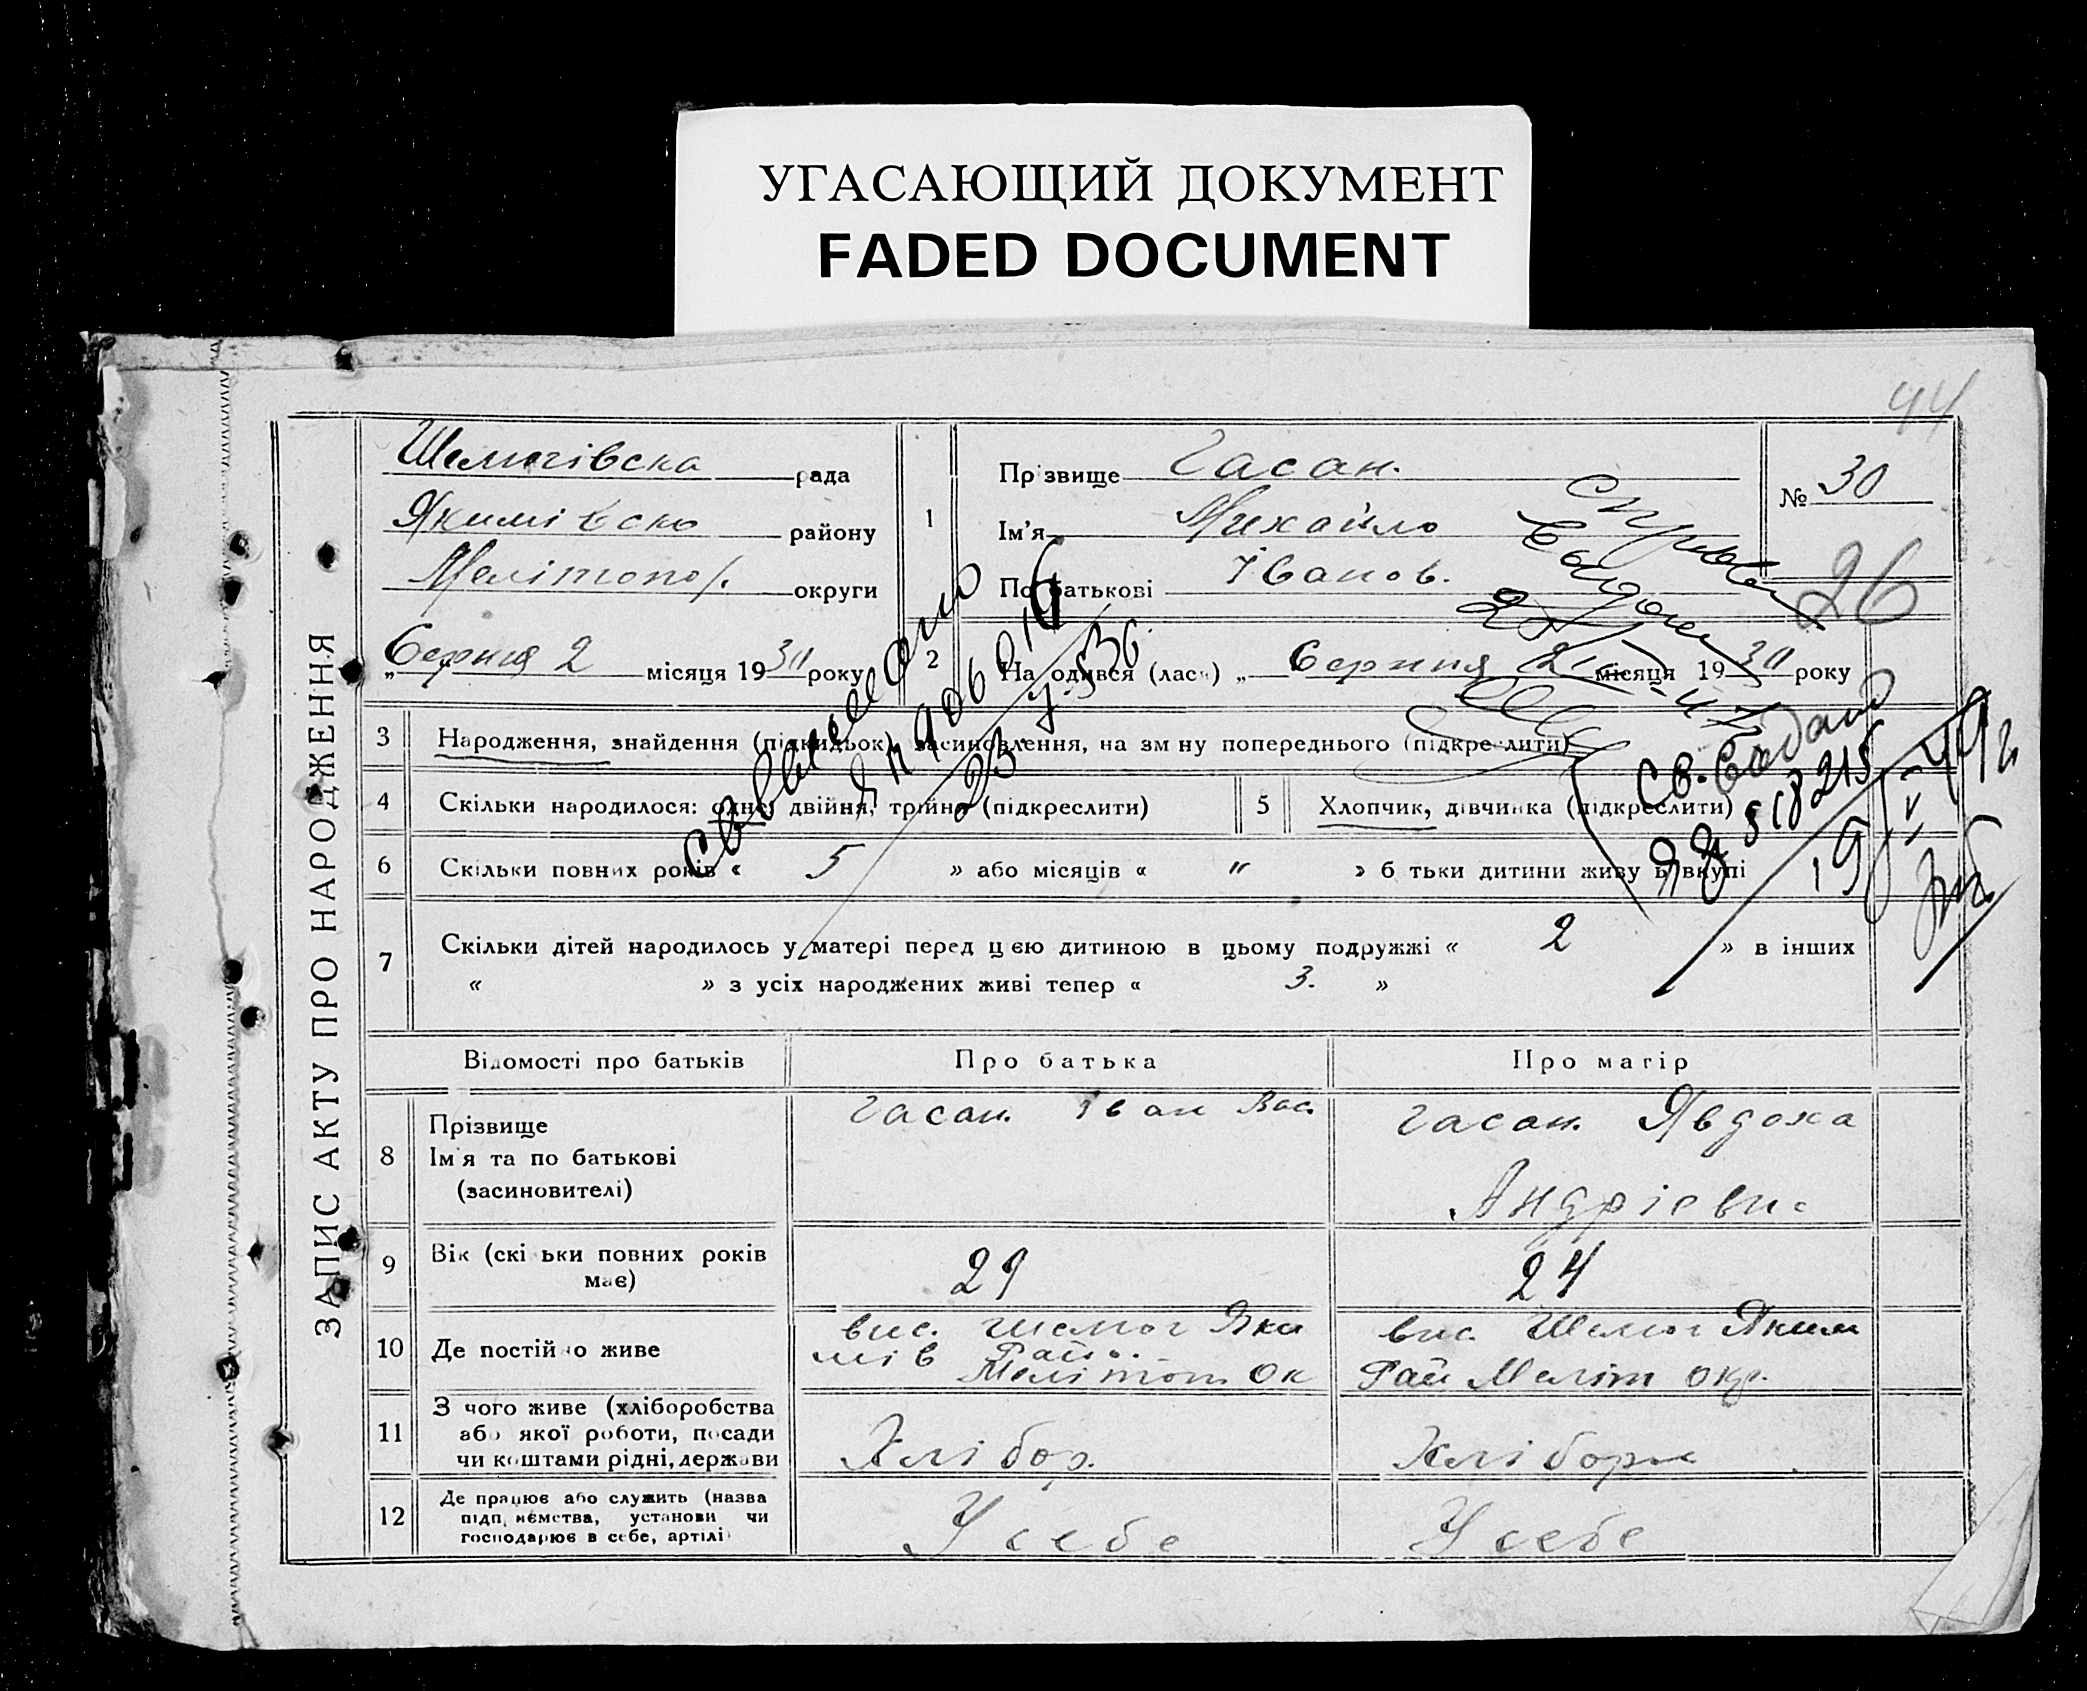 УГАСАЮЩИЙ ДОКУМЕНТ
FADED DOCUMENT
44
ЗАПИС АКТУ ПРО НАРОДЖЕННЯ
рада
Якимівсько району
Мелітопол. округи
„Серпня 2 місяця 1930 року
1
Прізвище Гасан.
Ім'я Михайло
По батькові Іванов.
№ 30
26
2
Народився (лась) „ Серпня 2 місяця 1930 року
3 Народження, знайдення (підкидьок), засиновлення, на зміну попереднього (підкреслити)
4 Скільки народилося: одне, двійня, трійня (підкреслити)
5 Хлопчик, дівчинка (підкреслити)
6 Скільки повних років « 5 » або місяців « " » батьки дитини живуть вкупі
7 Скільки дітей народилось у матері перед цією дитиною в цьому подружжі « 2 » в інших
« » з усіх народжених живі тепер « 3. »
Св. выдано
ЯЯ 518215
Відомості про батьків
Про батька
Про матір
8 Прізвище
Ім'я та по батькові
(засиновителі)
Гасан. Іван Вас.
Гасан. Явдоха
Андрієвна
9 Вік (скільки повних років
має)
29
24
10 Де постійно живе
вис. Шелюг Яки
мів Рай.
Меліт Ок
вис. Шелюг Яким
Рай Меліт окр.
11 З чого живе (хліборобства
або якої роботи, посади
чи коштами рідні, держави
Хлібор.
Хлібор
12 Де працює або служить (назва
підприємства, установи чи
господарює в себе, артілі)
У себе
У себе